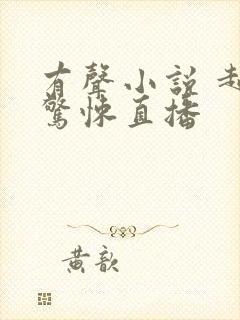 有聲小說
驚悚直播
黃歆